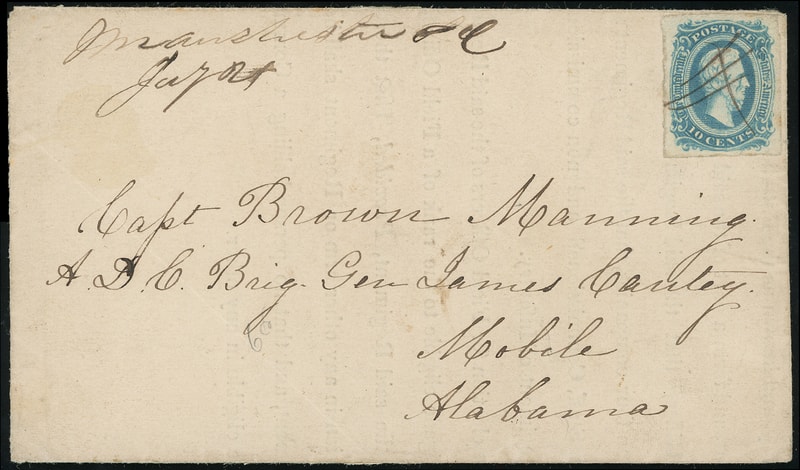 Manchester SC
Jay 21
POSTAGE
Confederate States America
10 CENTS
Capt Brown Manning.
A. D. C. Brig. Gen James Cantey.
Mobile
Alabama